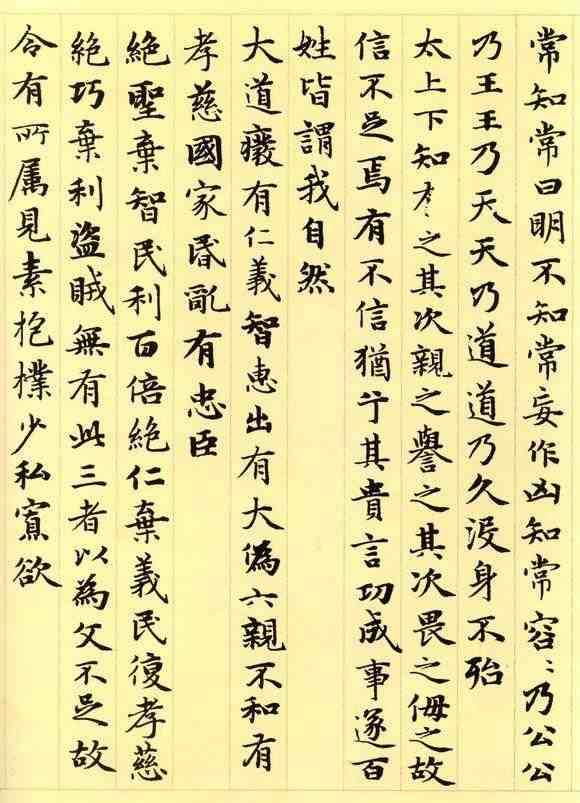 常知常曰明不知常妄作凶知常容〻乃公公
乃王王乃天天乃道道乃久沒身不殆
太上下知之其次親之譽之其次畏之侮之故
信不足焉有不信猶兮其貴言功成事遂百
姓皆謂我自然
大道癈有仁義智惠出有大偽六親不和有
孝慈國家昬亂有忠臣
絕聖棄智民利百倍絕仁棄義民復孝慈
絕巧棄利盜賊無有此三者以為文不足故
令有所屬見素抱樸少私寡欲